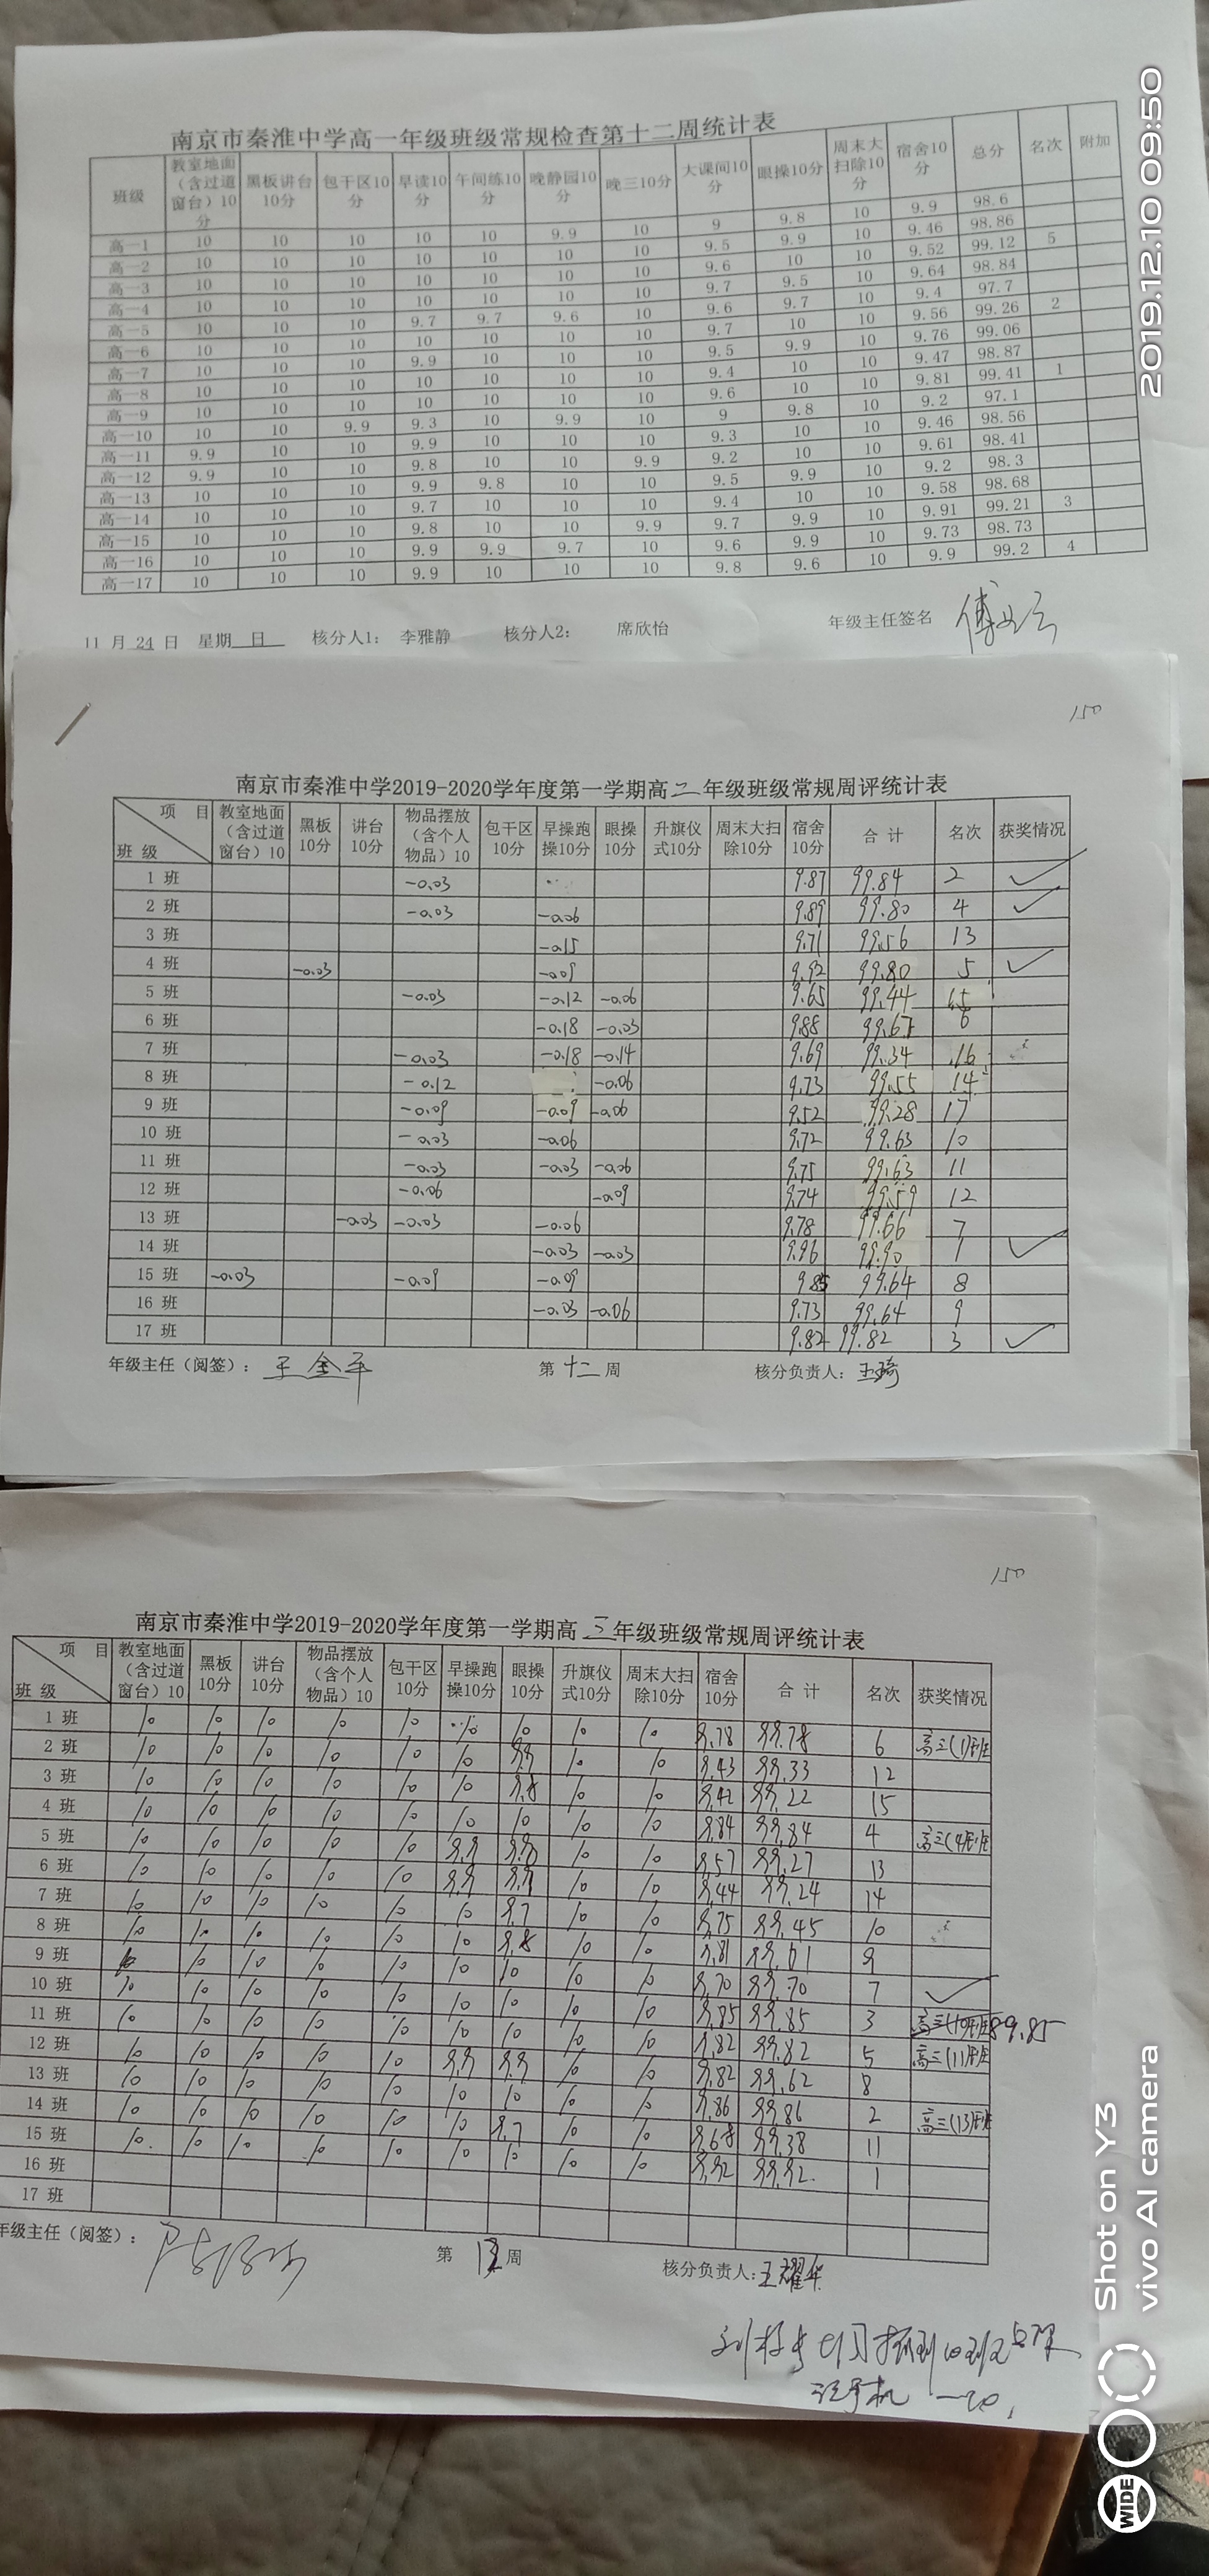 南京市秦淮中学高一年级班级常规检查第十二周统计表
班级 教室地面（含过道窗台）10分 黑板讲台10分 包干区10分 早读10分 午间练10分 晚静园10分 晚三10分 大课间10分 眼操10分 周末大扫除10分 宿舍10分 总分 名次 附加
高一1 10 10 10 10 10 9.9 10 9 9.8 10 9.9 98.6
高一2 10 10 10 10 10 10 10 9.5 9.9 10 9.46 98.86
高一3 10 10 10 10 10 10 10 9.6 10 10 9.52 99.12 5
高一4 10 10 10 10 10 10 10 9.7 9.5 10 9.64 98.84
高一5 10 10 10 9.7 9.7 9.6 10 9.6 9.7 10 9.4 97.7
高一6 10 10 10 10 10 10 10 9.7 10 10 9.56 99.26 2
高一7 10 10 10 9.9 10 10 10 9.5 9.9 10 9.76 99.06
高一8 10 10 10 10 10 10 10 9.4 10 10 9.47 98.87
高一9 10 10 10 10 10 10 10 9.6 10 10 9.81 99.41 1
高一10 10 10 9.9 9.3 10 9.9 10 9 9.8 10 9.2 97.1
高一11 9.9 10 10 9.9 10 10 10 9.3 10 10 9.46 98.56
高一12 9.9 10 10 9.8 10 10 9.9 9.2 10 10 9.61 98.41
高一13 10 10 10 9.9 9.8 10 10 9.5 9.9 10 9.2 98.3
高一14 10 10 10 9.7 10 10 10 9.4 10 10 9.58 98.68
高一15 10 10 10 9.8 10 10 9.9 9.7 9.9 10 9.91 99.21 3
高一16 10 10 10 9.9 9.9 9.7 10 9.6 9.9 10 9.73 98.73
高一17 10 10 10 9.9 10 10 10 9.8 9.6 10 9.9 99.2 4
11 月 24 日 星期 日 核分人1： 李雅静 核分人2： 席欣怡 年级主任签名
150
南京市秦淮中学2019-2020学年度第一学期高二年级班级常规周评统计表
项 目 班 级 教室地面（含过道窗台）10 黑板10分 讲台10分 物品摆放（含个人物品）10 包干区10分 早操跑操10分 眼操10分 升旗仪式10分 周末大扫除10分 宿舍10分 合 计 名次 获奖情况
1 班 -0.03 9.87 99.84 2 ✓
2 班 -0.03 -0.06 9.89 99.80 4 ✓
3 班 -0.15 9.71 99.56 13
4 班 -0.03 -0.09 9.92 99.80 5 ✓
5 班 -0.03 -0.12 -0.06 9.65 99.44 15
6 班 -0.18 -0.03 9.88 99.67 6
7 班 -0.03 -0.18 -0.14 9.69 99.34 16
8 班 -0.12 -0.06 9.73 99.55 14
9 班 -0.09 -0.09 -0.06 9.52 99.28 17
10 班 -0.03 -0.06 9.72 99.63 10
11 班 -0.03 -0.03 -0.06 9.75 99.63 11
12 班 -0.06 -0.09 9.74 99.59 12
13 班 -0.03 -0.03 -0.06 9.78 99.66 7
14 班 -0.03 -0.03 9.96 99.90 1 ✓
15 班 -0.03 -0.09 -0.09 9.85 99.64 8
16 班 -0.03 -0.06 9.73 99.64 9
17 班 9.82 99.82 3 ✓
年级主任（阅签）： 王金平 第 十二 周 核分负责人： 王琦
150
南京市秦淮中学2019-2020学年度第一学期高三年级班级常规周评统计表
项 目 班 级 教室地面（含过道窗台）10 黑板10分 讲台10分 物品摆放（含个人物品）10 包干区10分 早操跑操10分 眼操10分 升旗仪式10分 周末大扫除10分 宿舍10分 合 计 名次 获奖情况
1 班 10 10 10 10 10 10 10 10 10 9.78 99.78 6 高三(1)班
2 班 10 10 10 10 10 10 9.9 10 10 9.43 99.33 12
3 班 10 10 10 10 10 10 9.8 10 10 9.42 99.22 15
4 班 10 10 10 10 10 10 10 10 10 9.84 99.84 4 高三(4)班
5 班 10 10 10 10 10 9.9 9.8 10 10 9.57 99.27 13
6 班 10 10 10 10 10 9.9 9.9 10 10 9.44 99.24 14
7 班 10 10 10 10 10 10 9.7 10 10 9.75 99.45 10
8 班 10 10 10 10 10 10 9.8 10 10 9.81 99.61 9
9 班 10 10 10 10 10 10 10 10 10 9.70 99.70 7 ✓
10 班 10 10 10 10 10 10 10 10 10 9.85 99.85 3 高三(10)班 89.85
11 班 10 10 10 10 10 10 10 10 10 9.82 99.82 5 高三(11)班
12 班 10 10 10 10 10 9.9 9.9 10 10 9.82 99.62 8
13 班 10 10 10 10 10 10 10 10 10 9.86 99.86 2 高三(13)班
14 班 10 10 10 10 10 10 9.7 10 10 9.68 99.38 11
15 班 10 10 10 10 10 10 10 10 10 9.92 99.92 1
16 班
17 班
年级主任（阅签）： 第 12 周 核分负责人： 王耀华
2019.12.10 09:50
Shot on Y3
vivo AI camera
WIDE